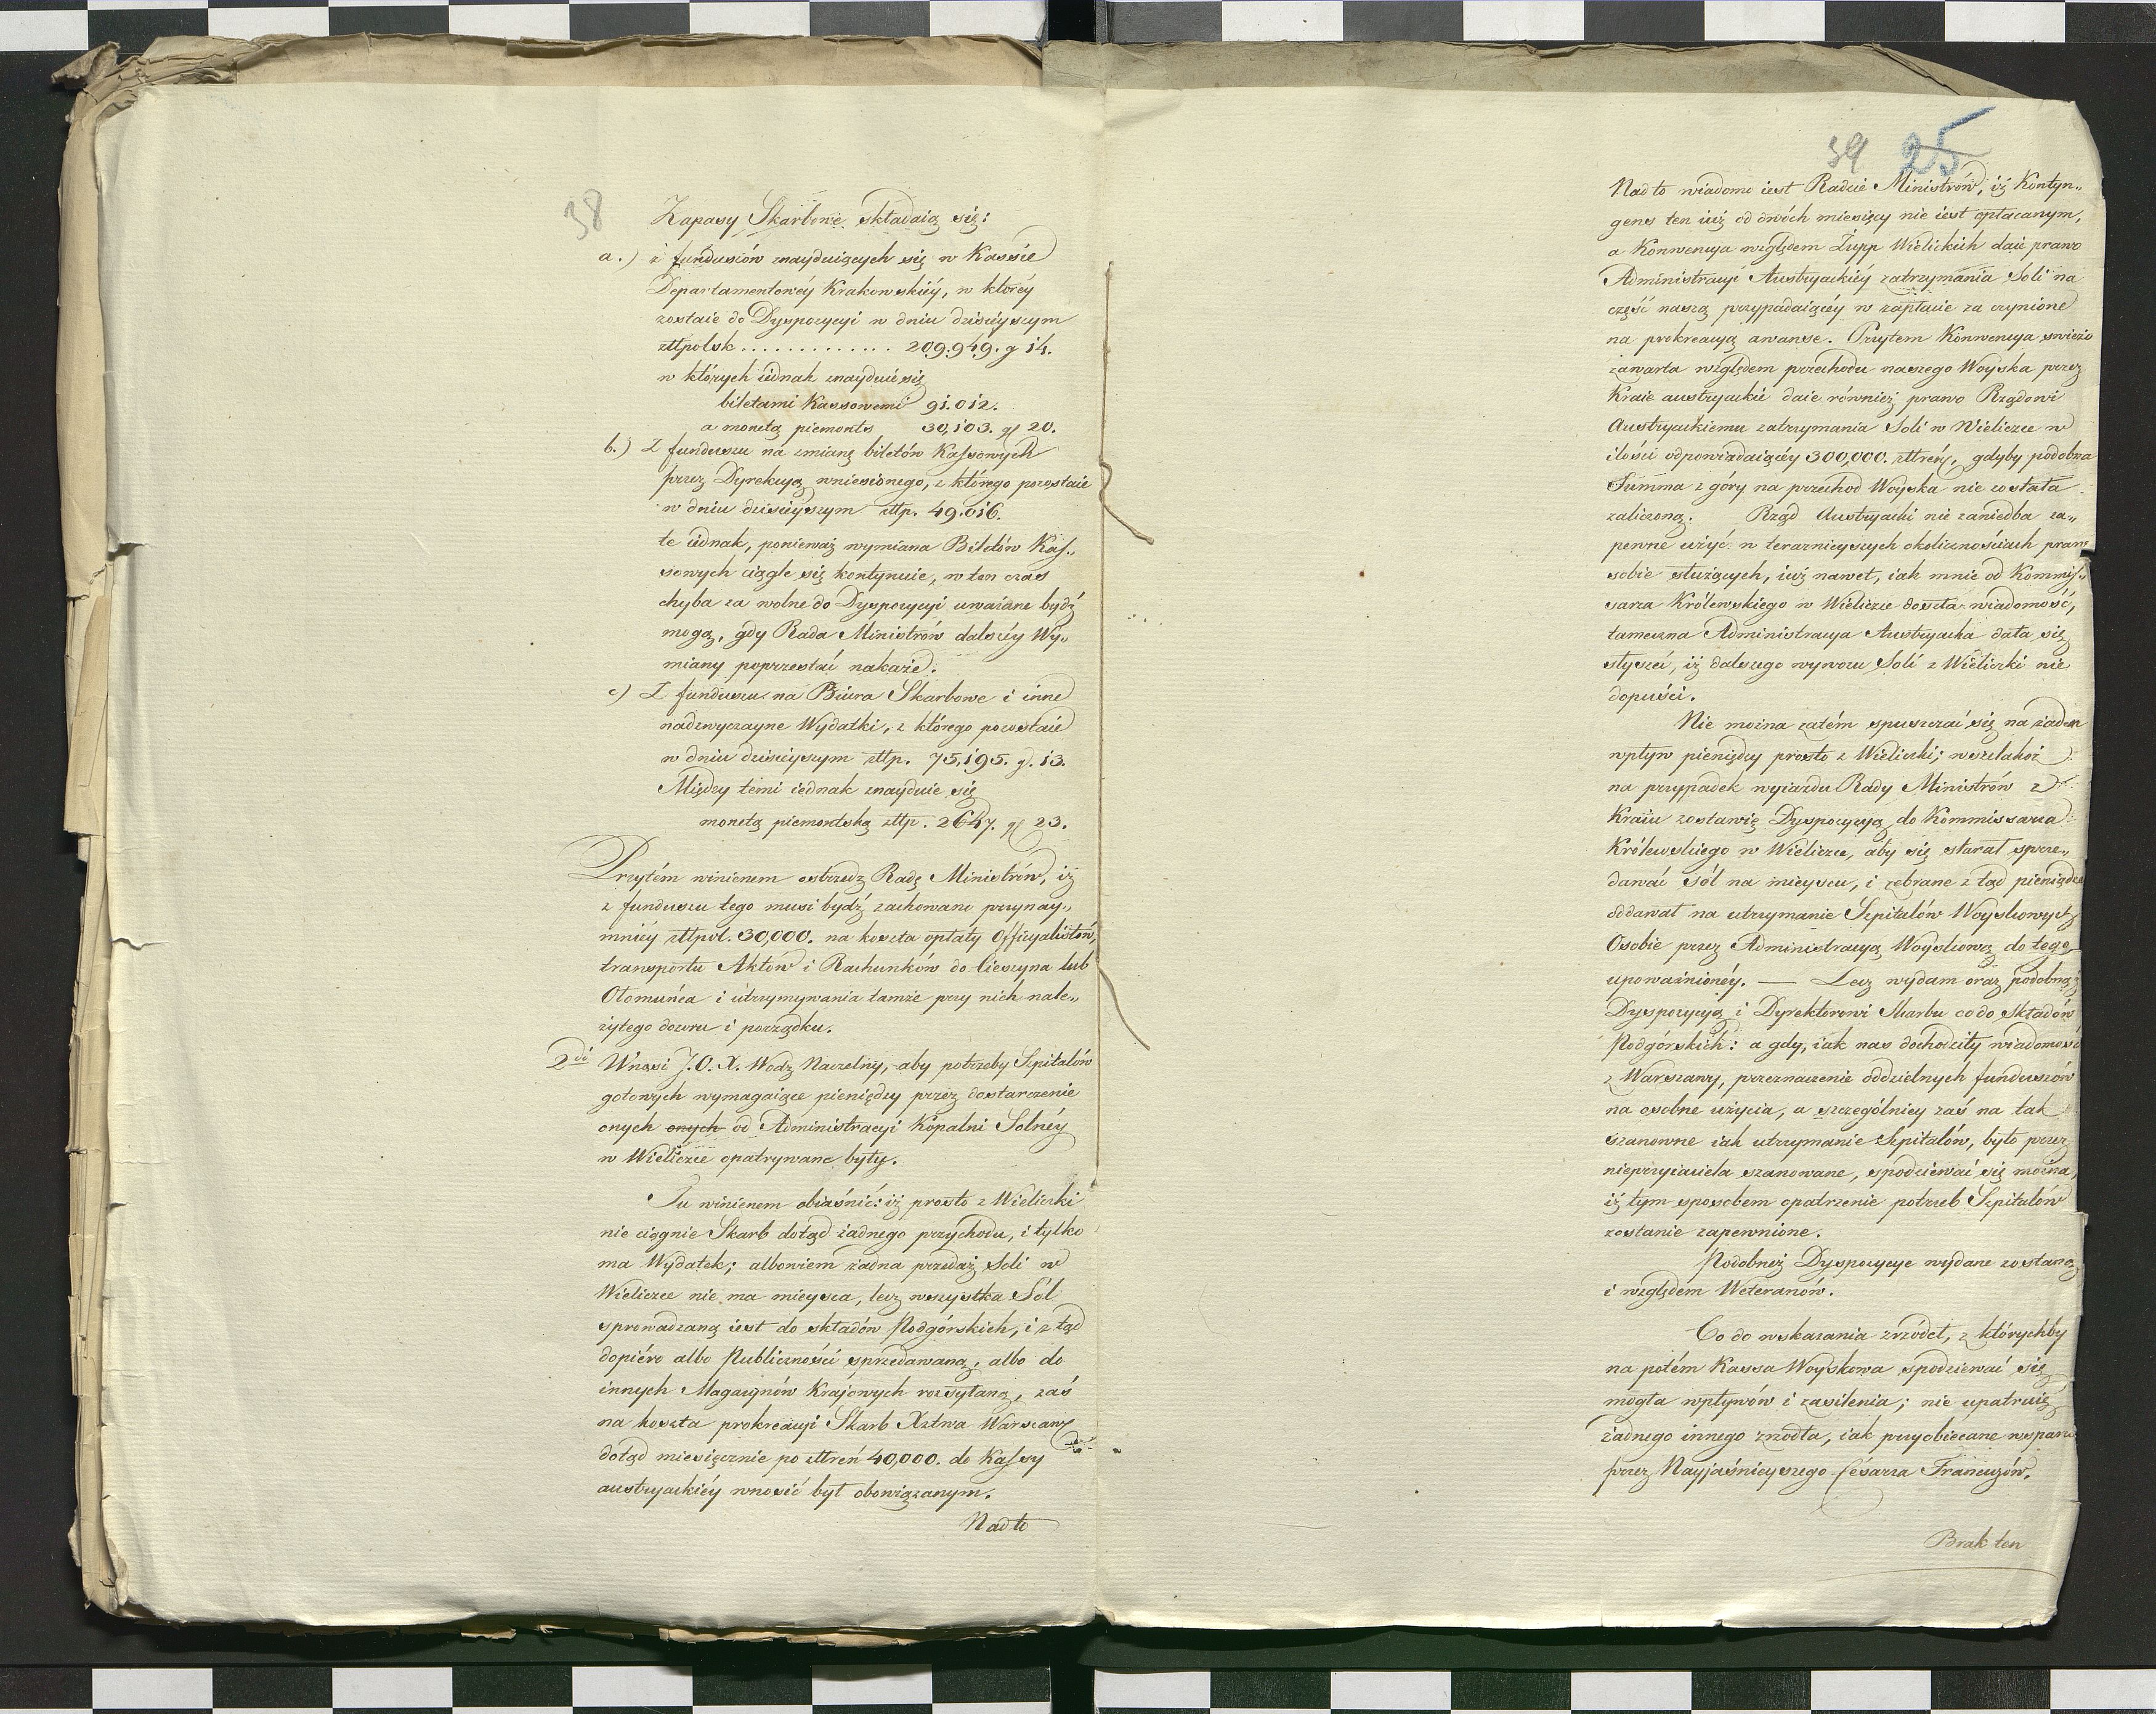 38
Zapasy Skarbowe składaią się:
a.) z funduszów znayduiących się w Kassie
Departamentowéy Krakowskiéy, w któréy
zostaie do Dyspozycyi w dniu dzisieyszym
złtpolsk ............. 209.949. g 14.
w których iednak znayduie się
biletami Kassowemi 91.012.
a monetą piemonts 30,103. gl 20.
b.) Z funduszu na zmianę biletów Kassowych
przez Dyrekcyą wniesionego, z którego pozostaie
w dniu dzisieyszym złtp. 49.016.
te iednak, ponieważ wymiana Biletów Kas„
sowych ciągle się kontynuie, w ten czas
chyba za wolne do Dyspozycyi uważane bydź
mogą, gdy Rada Ministrów dalszéy Wy„
miany poprzestać nakaże.
c) Z funduszu na Biura Skarbowe i inne
nadzwyczayne Wydatki, z którego pozostaie
w dniu dzisieyszym złtp. 75,195. g. 13.
Między temi iednak znayduie się
monetą piemontską złtp. 2647. gl 23.
Przytém winienem ostrzedz Radę Ministrów, iż
z funduszu tego musi bydź zachowane przynay„
mniéy złtpol. 30,000. na koszta opłaty Officyalistów,
transportu Aktow i Rachunków do Cieszyna lub
Ołomuńca i utrzymywania tamże przy nich nale„
żytego dozoru i porządku.
2do Wnosi J.O.X. Wodz Naczelny, aby potrzeby Szpitalów
gotowych wymagaiące pieniędzy przez dostarczenie
onych onych od Administracyi Kopalni Solnéy
w Wieliczce opatrywane były.
Tu winienem obiaśnić: iż prosto z Wieliczki
nie ciągnie Skarb dotąd żadnego przychodu, i tylko
ma Wydatek; albowiem żadna przedaż Soli w
Wieliczce nie ma mieysca, lecz wszystka Sól
sprowadzaną iest do składów Podgórskich, i z tąd
dopiéro albo Publiczności sprzedawaną, albo do
innych Magazynów Krajowych rozsyłaną, zaś
na koszta prokreacyi Skarb Xsztwa Warszaws
dotąd miesięcznie po złtreń 40,000. do Kassy
austryackiéy wnosić był obowiązanym.
Nadto
39 25
Nadto wiadomo iest Radzie Ministrów, iż Kontyn„
gens ten iuż od dwóch miesięcy nie iest opłacanym,
a Konwencya względem Żupp Wielickich daie prawo
Administracyi Austryackiéy zatrzymania Soli na
część naszą przypadaiącéy w zapłacie za czynione
na prokreacyą awanse. Przytem Konwencya swieżo
zawarta względem przechodu naszego Woyska przez
Kraie austryackie daie również prawo Rządowi
Austryackiemu zatrzymania Soli w Wieliczce w
ilości odpowiadaiącéy 300,000. złtreń, gdyby podobna
Summa z góry na przechod Woyska nie została
zaliczoną. Rząd Austryacki nie zaniedba za„
pewne użyć w teraznieyszych okolicznościach praw
sobie służących, iuż nawet, iak mnie od Kommis„
sarza Królewskiego w Wieliczce doszła wiadomość,
tameczna Administracya Austryacka dała się
słyszeć, iż dalszego wywozu Soli z Wieliczki nie
dopuści.
Nie można zatém spuszczać się na żaden
wpływ pieniędzy prosto z Wieliczki; wszelakoż
na przypadek wyiazdu Rady Ministrów z
Kraiu zostawię Dyspozycyą do Kommissarza
Królewskiego w Wieliczce, aby się starał sprze„
dawać sól na mieyscu, i zebrane z tąd pieniądze
oddawał na utrzymanie Szpitalów Woyskowych
Osobie przez Administracyą Woyskową do tego
upoważnionéy. — Lecz wydam oraz podobnąż
Dyspozycyą i Dyrektorowi Skarbu co do Składów
Podgórskich: a gdy, iak nas dochodziły wiadomości
z Warszawy, przeznaczenie oddzielnych funduszów
na osobne użycia, a szczególniey zaś na tak
szanowne iak utrzymanie Szpitalów, było przez
nieprzyiaciela szanowane, spodziewać się można,
iż tym sposobem opatrzenie potrzeb Szpitalów
zostanie zapewnione.
Podobneż Dyspozycye wydane zostaną
i względem Weteranów.
Co do wskazania zrzódeł, z którychby
na potém Kassa Woyskowa spodziewać się
mogła wpływów i zasilenia; nie upatruię
żadnego innego zrzódła, iak przyobiecane wsparcie
przez Nayjaśnieyszego Césarza Francuzów.
Brak ten